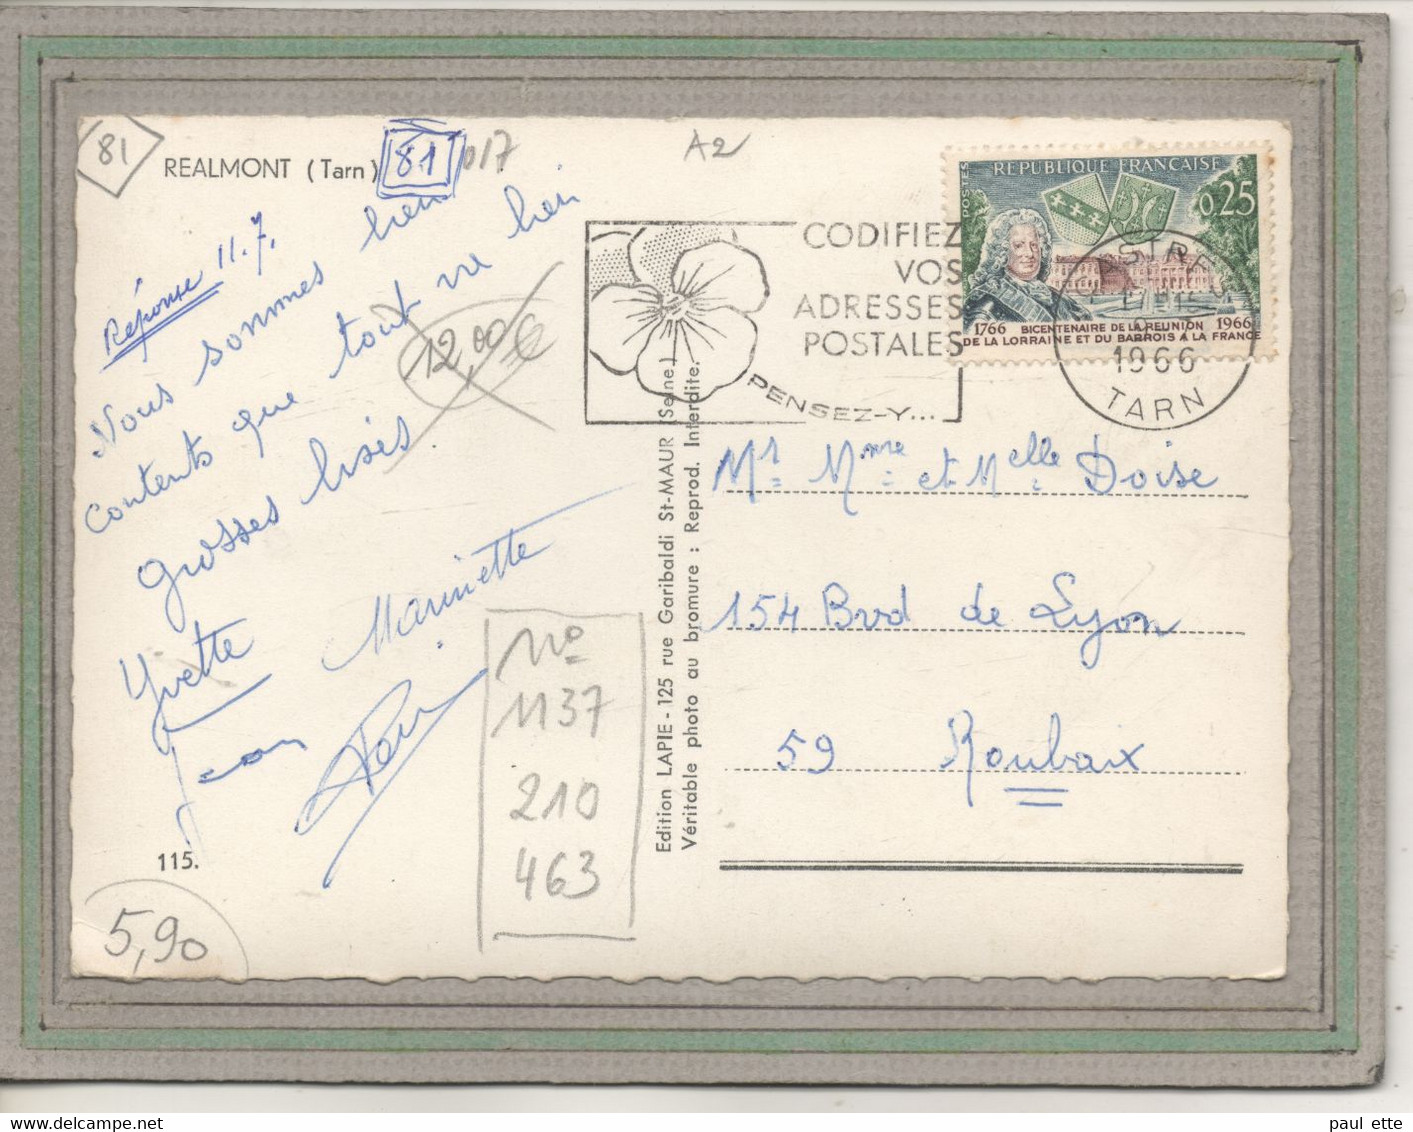 81
REALMONT (Tarn)
81
017
A2
Réponse 11.7.
Nous sommes bien
contents que tout va bien
grosses bises.
Yvette
Mariette
Jean
12,00 €
N°
1137
210
463
115.
5,90
Edition LAPIE - 125 rue Garibaldi St-MAUR (Seine)
Véritable photo au bromure : Reprod. Interdite.
CODIFIEZ
VOS
ADRESSES
POSTALES
PENSEZ-Y...
REPUBLIQUE FRANÇAISE
POSTES
0,25
1766 BICENTENAIRE DE LA REUNION 1966
DE LA LORRAINE ET DU BARROIS A LA FRANCE
1966
TARN
Mr Mme et Melle Doise
154 Bvd de Lyon
59 Roubaix
paul ette